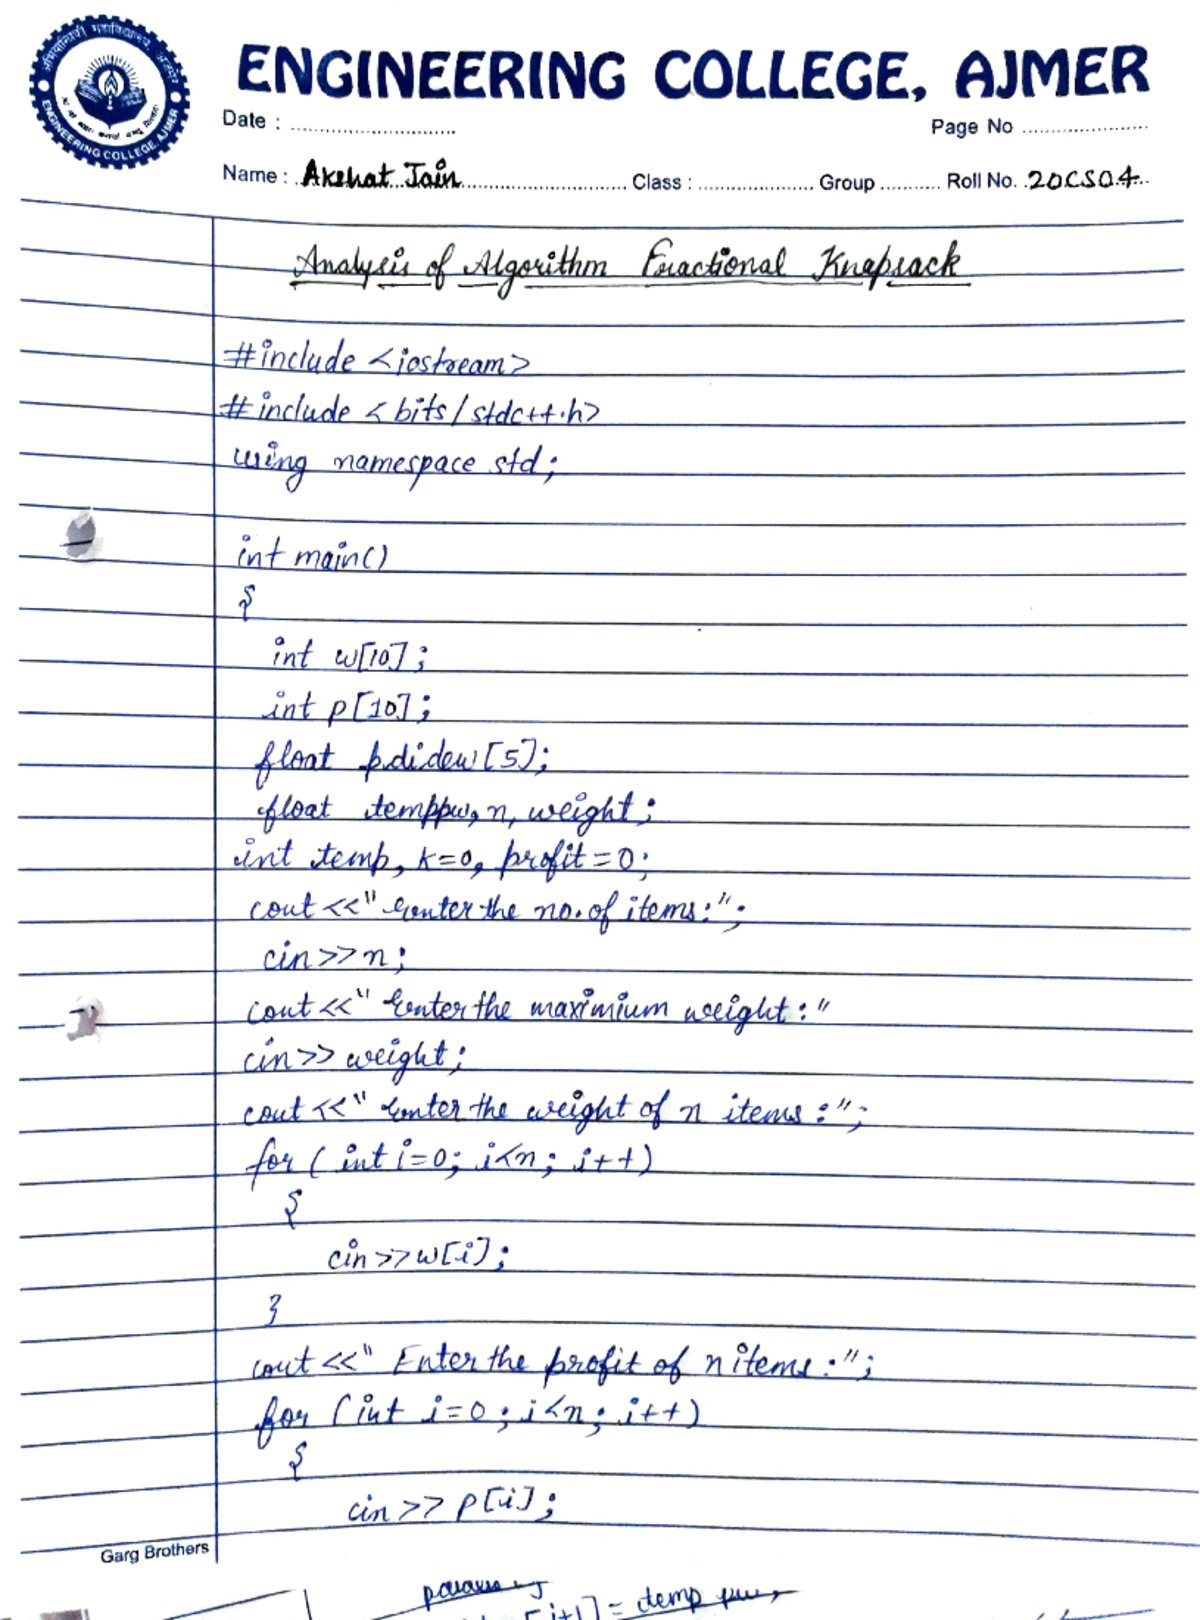 ENGINEERING COLLEGE, AJMER
ENGINEERING COLLEGE, AJMER
Date :
Page No
Name : Akshat Jain Class : Group Roll No. 20CS04
Analysis of Algorithm Fractional Knapsack
#include <iostream>
#include <bits/stdc++.h>
using namespace std;
int main()
{
int w[10];
int p[10];
float p.didew[5];
float temppw, n, weight;
int temp, k=0, profit=0;
cout <<" Eenter the no. of items:";
cin>>n;
cout <<" Eenter the maximium weight:"
cin>> weight;
cout <<" Eenter the weight of n items:";
for ( int i=0; i<n; i++)
{
cin >>w[i];
}
cout <<" Enter the profit of n items:";
for (int i=0; i<n; i++)
{
cin >> p[i];
Garg Brothers
[j+1] = temp pw,